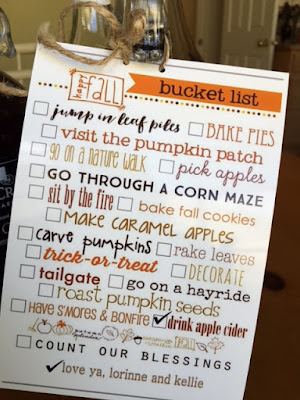 happy fall bucket list
jump in leaf piles BAKE PIES
visit the pumpkin patch
go on a nature walk pick apples
GO THROUGH A CORN MAZE
sit by the fire bake fall cookies
MAKE CARAMEL APPLES
carve pumpkins rake leaves
trick-or-treat DECORATE
tailgate go on a hayride
roast pumpkin seeds
HAVE S'MORES & BONFIRE drink apple cider
COUNT OUR BLESSINGS
love ya, lorinne and kellie